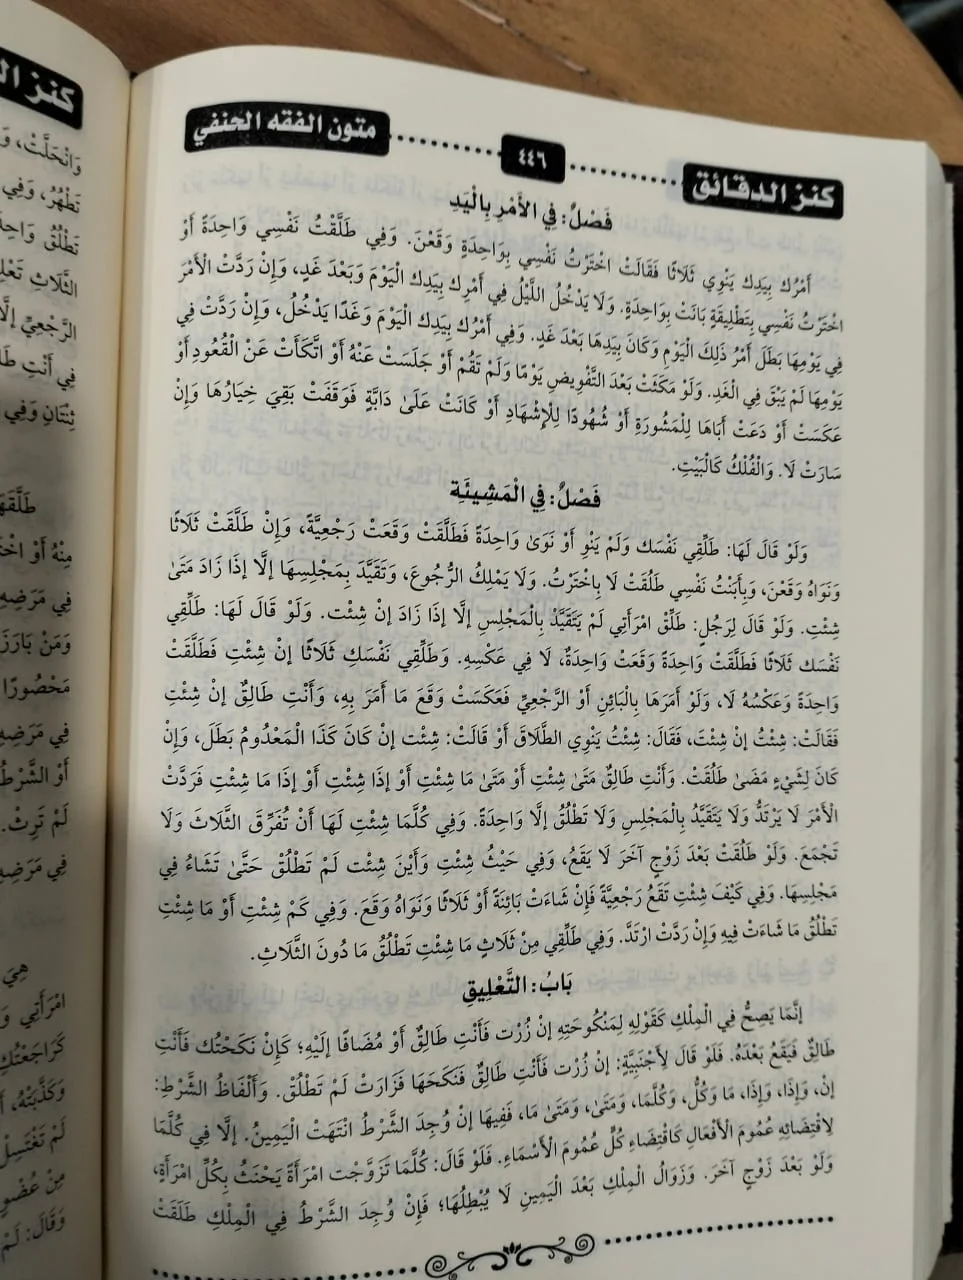 كنز الدقائق
٤٤٦
متون الفقه الحنفي
فَصْلٌ: فِي الأَمْرِ بِالْيَدِ
أَمْرُكِ بِيَدِك يَنْوِي ثَلَاثًا فَقَالَتْ اخْتَرْتُ نَفْسِي بِوَاحِدَةٍ وَقَعْنَ. وَفِي طَلَّقْتُ نَفْسِي وَاحِدَةً أَوْ
اخْتَرْتُ نَفْسِي بِتَطْلِيقَةٍ بَانَتْ بِوَاحِدَةٍ. وَلَا يَدْخُلُ اللَّيْلُ فِي أَمْرِك بِيَدِك الْيَوْمَ وَبَعْدَ غَدٍ، وَإِنْ رَدَّتْ الْأَمْرَ
فِي يَوْمِهَا بَطَلَ أَمْرُ ذَلِكَ الْيَوْمِ وَكَانَ بِيَدِهَا بَعْدَ غَدٍ. وَفِي أَمْرُك بِيَدِك الْيَوْمَ وَغَدًا يَدْخُلُ، وَإِنْ رَدَّتْ فِي
يَوْمِهَا لَمْ يَبْقَ فِي الْغَدِ. وَلَوْ مَكَثَتْ بَعْدَ التَّفْوِيضِ يَوْمًا وَلَمْ تَقُمْ أَوْ جَلَسَتْ عَنْهُ أَوْ اتَّكَأَتْ عَنْ الْقُعُودِ أَوْ
عَكَسَتْ أَوْ دَعَتْ أَبَاهَا لِلْمَشُورَةِ أَوْ شُهُودًا لِلْإِشْهَادِ أَوْ كَانَتْ عَلَىٰ دَابَّةٍ فَوَقَفَتْ بَقِيَ خِيَارُهَا وَإِنْ
سَارَتْ لَا. وَالْفُلْكُ كَالْبَيْتِ.
فَصْلٌ: فِي الْمَشِيئَةِ
وَلَوْ قَالَ لَهَا: طَلِّقِي نَفْسَك وَلَمْ يَنْوِ أَوْ نَوَىٰ وَاحِدَةً فَطَلَّقَتْ وَقَعَتْ رَجْعِيَّةً، وَإِنْ طَلَّقَتْ ثَلَاثًا
وَنَوَاهُ وَقَعْنَ، وَبِأَبَنْتُ نَفْسِي طَلُقَتْ لَا بِاخْتَرْتُ. وَلَا يَمْلِكُ الرُّجُوعَ، وَتَقَيَّدَ بِمَجْلِسِهَا إلَّا إذَا زَادَ مَتَىٰ
شِئْتِ. وَلَوْ قَالَ لِرَجُلٍ: طَلِّقْ امْرَأَتِي لَمْ يَتَقَيَّدْ بِالْمَجْلِسِ إلَّا إذَا زَادَ إنْ شِئْت. وَلَوْ قَالَ لَهَا: طَلِّقِي
نَفْسَك ثَلَاثًا فَطَلَّقَتْ وَاحِدَةً وَقَعَتْ وَاحِدَةٌ، لَا فِي عَكْسِهِ. وَطَلِّقِي نَفْسَكِ ثَلَاثًا إنْ شِئْتِ فَطَلَّقَتْ
وَاحِدَةً وَعَكْسُهُ لَا، وَلَوْ أَمَرَهَا بِالْبَائِنِ أَوْ الرَّجْعِيِّ فَعَكَسَتْ وَقَعَ مَا أَمَرَ بِهِ، وَأَنْتِ طَالِقٌ إنْ شِئْتِ
فَقَالَتْ: شِئْتُ إنْ شِئْتَ، فَقَالَ: شِئْتُ يَنْوِي الطَّلَاقَ أَوْ قَالَتْ: شِئْت إنْ كَانَ كَذَا الْمَعْدُومُ بَطَلَ، وَإِنْ
كَانَ لِشَيْءٍ مَضَىٰ طَلُقَتْ. وَأَنْتِ طَالِقٌ مَتَىٰ شِئْتِ أَوْ مَتَىٰ مَا شِئْتِ أَوْ إذَا شِئْتِ أَوْ إذَا مَا شِئْتِ فَرَدَّتْ
الْأَمْرَ لَا يَرْتَدُّ وَلَا يَتَقَيَّدُ بِالْمَجْلِسِ وَلَا تَطْلُقُ إلَّا وَاحِدَةً. وَفِي كُلَّمَا شِئْتِ لَهَا أَنْ تُفَرِّقَ الثَّلَاثَ وَلَا
تَجْمَعَ. وَلَوْ طَلُقَتْ بَعْدَ زَوْجٍ آخَرَ لَا يَقَعُ، وَفِي حَيْثُ شِئْتِ وَأَيْنَ شِئْت لَمْ تَطْلُقْ حَتَّىٰ تَشَاءَ فِي
مَجْلِسِهَا. وَفِي كَيْفَ شِئْتِ تَقَعُ رَجْعِيَّةً فَإِنْ شَاءَتْ بَائِنَةً أَوْ ثَلَاثًا وَنَوَاهُ وَقَعَ. وَفِي كَمْ شِئْتِ أَوْ مَا شِئْتِ
تَطْلُقُ مَا شَاءَتْ فِيهِ وَإِنْ رَدَّتْ ارْتَدَّ. وَفِي طَلِّقِي مِنْ ثَلَاثٍ مَا شِئْتِ تَطْلُقُ مَا دُونَ الثَّلَاثِ.
بَابُ: التَّعْلِيقِ
إنَّمَا يَصِحُّ فِي الْمِلْكِ كَقَوْلِهِ لِمَنْكُوحَتِهِ إنْ زُرْت فَأَنْتِ طَالِقٌ أَوْ مُضَافًا إلَيْهِ؛ كَإِنْ نَكَحْتُك فَأَنْتِ
طَالِقٌ فَيَقَعُ بَعْدَهُ. فَلَوْ قَالَ لِأَجْنَبِيَّةٍ: إنْ زُرْت فَأَنْتِ طَالِقٌ فَنَكَحَهَا فَزَارَتْ لَمْ تَطْلُقْ. وَأَلْفَاظُ الشَّرْطِ:
إنْ، وَإِذَا، وَإِذَا، مَا وَكُلُّ، وَكُلَّمَا، وَمَتَىٰ، وَمَتَىٰ مَا، فَفِيهَا إنْ وُجِدَ الشَّرْطُ انْتَهَتْ الْيَمِينُ. إلَّا فِي كُلَّمَا
لِاقْتِضَائِهِ عُمُومَ الْأَفْعَالِ كَاقْتِضَاءِ كُلٍّ عُمُومَ الْأَسْمَاءِ. فَلَوْ قَالَ: كُلَّمَا تَزَوَّجْت امْرَأَةً يَحْنَثُ بِكُلِّ امْرَأَةٍ،
وَلَوْ بَعْدَ زَوْجٍ آخَرَ. وَزَوَالُ الْمِلْكِ بَعْدَ الْيَمِينِ لَا يُبْطِلُهَا؛ فَإِنْ وُجِدَ الشَّرْطُ فِي الْمِلْكِ طَلَقَتْ